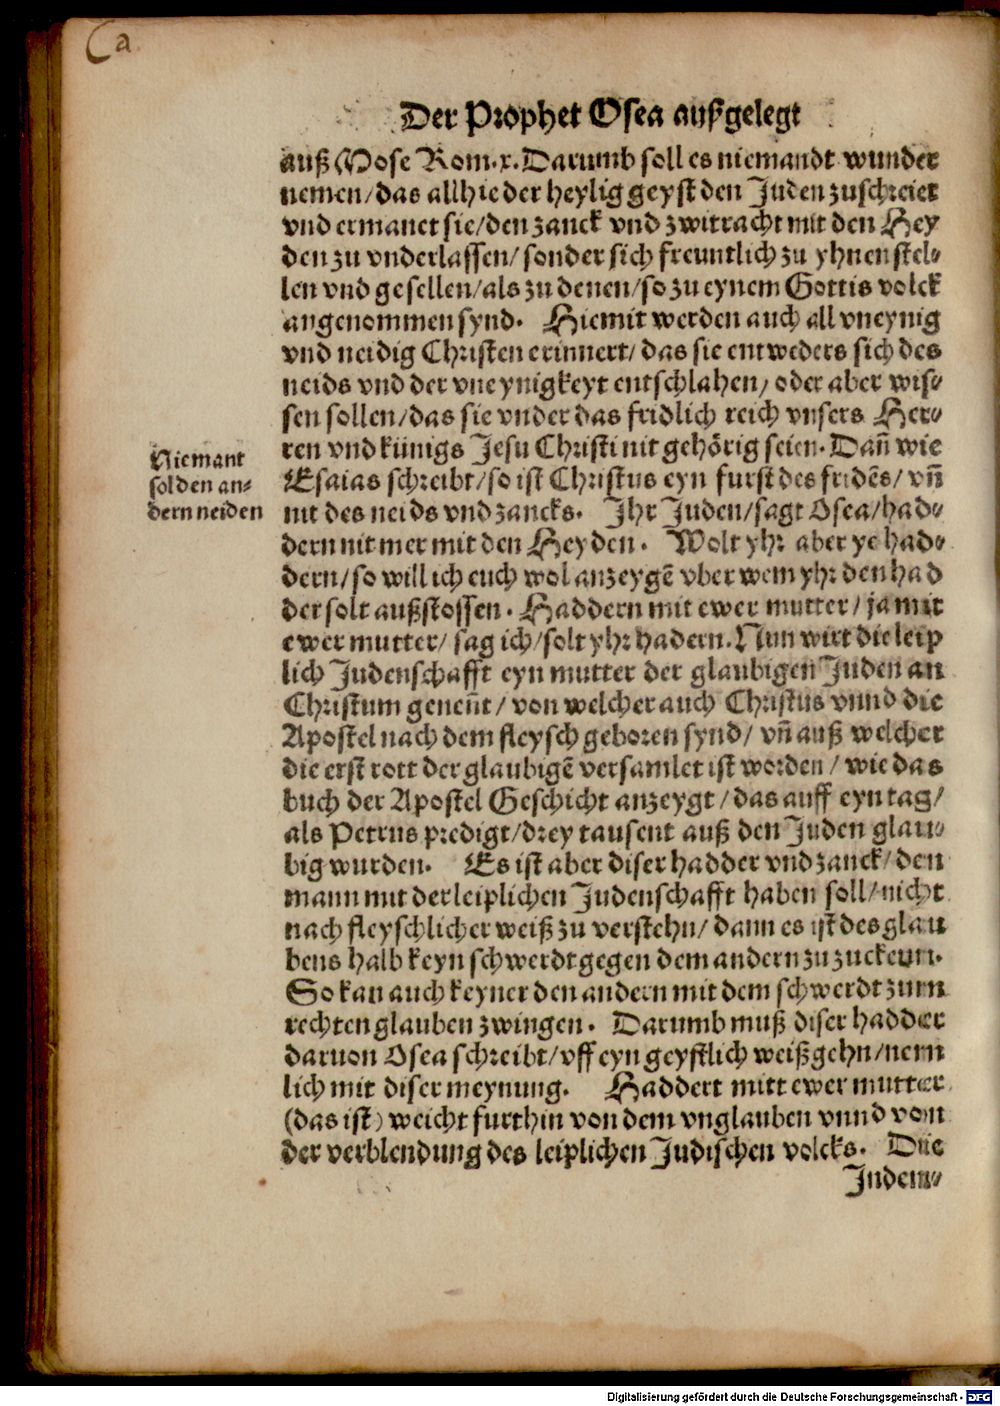 a
Der Prophet Osea außgelegt
auß Mose Rom.x. Darumb soll es niemandt wunder
nemen/das allhie der heylig geyst den Juden zuschreiet
vnd ermanet sie/den zanck vnd zwitracht mit den Hey
den zu vnderlassen/sonder sich freuntlich zu yhnen stel⸗
len vnd gesellen/als zu denen/so zu eynem Gottis volck
angenommen synd. Hiemit werden auch all vneynig
vnd neidig Christen erinnert/das sie entweders sich des
neids vnd der vneynigkeyt entschlahen/oder aber wis⸗
sen sollen/das sie vnder das fridlich reich vnsers Her⸗
ren vnd künigs Jesu Christi nit gehörig seien. Dañ wie
Esaias schreibt/so ist Christus eyn furst des fridẽs/vñ
nit des neids vnd zancks. Jhr Juden/sagt Osea/had⸗
dern nit mer mit den Heyden. Wolt yhr aber ye had⸗
dern/so will ich euch wol anzeygẽ vber wem yhr den had
der solt außstossen. Haddern mit ewer mutter/ja mit
ewer mutter/sag ich/solt yhr hadern. Nun wirt die leip
lich Judenschafft eyn mutter der glaubigen Juden an
Christum geneñt/von welcher auch Christus vnnd die
Apostel nach dem fleysch geboren synd/vñ auß welcher
die erst rott der glaubigẽ versamlet ist worden/wie das
buch der Apostel Geschicht anzeygt/das auff eyn tag/
als Petrus predigt/drey tausent auß den Juden glau⸗
big wurden. Es ist aber diser hadder vnd zanck/den
mann mit der leiplichen Judenschafft haben soll/nicht
nach fleyschlicher weiß zu verstehn/dann es ist des glau
bens halb keyn schwerdt gegen dem andern zu zuckenn.
So kan auch keyner den andern mit dem schwerdt zum
rechten glauben zwingen. Darumb muß diser hadder
daruon Osea schreibt/vff eyn geystlich weiß gehn/nem
lich mit diser meynung. Haddert mitt ewer mutter
(das ist) weicht furthin von dem vnglauben vnnd von
der verblendung des leiplichen Judischen volcks. Die
Juden⸗
Niemant
sol den an⸗
dern neiden
Digitalisierung gefördert durch die Deutsche Forschungsgemeinschaft - DFG